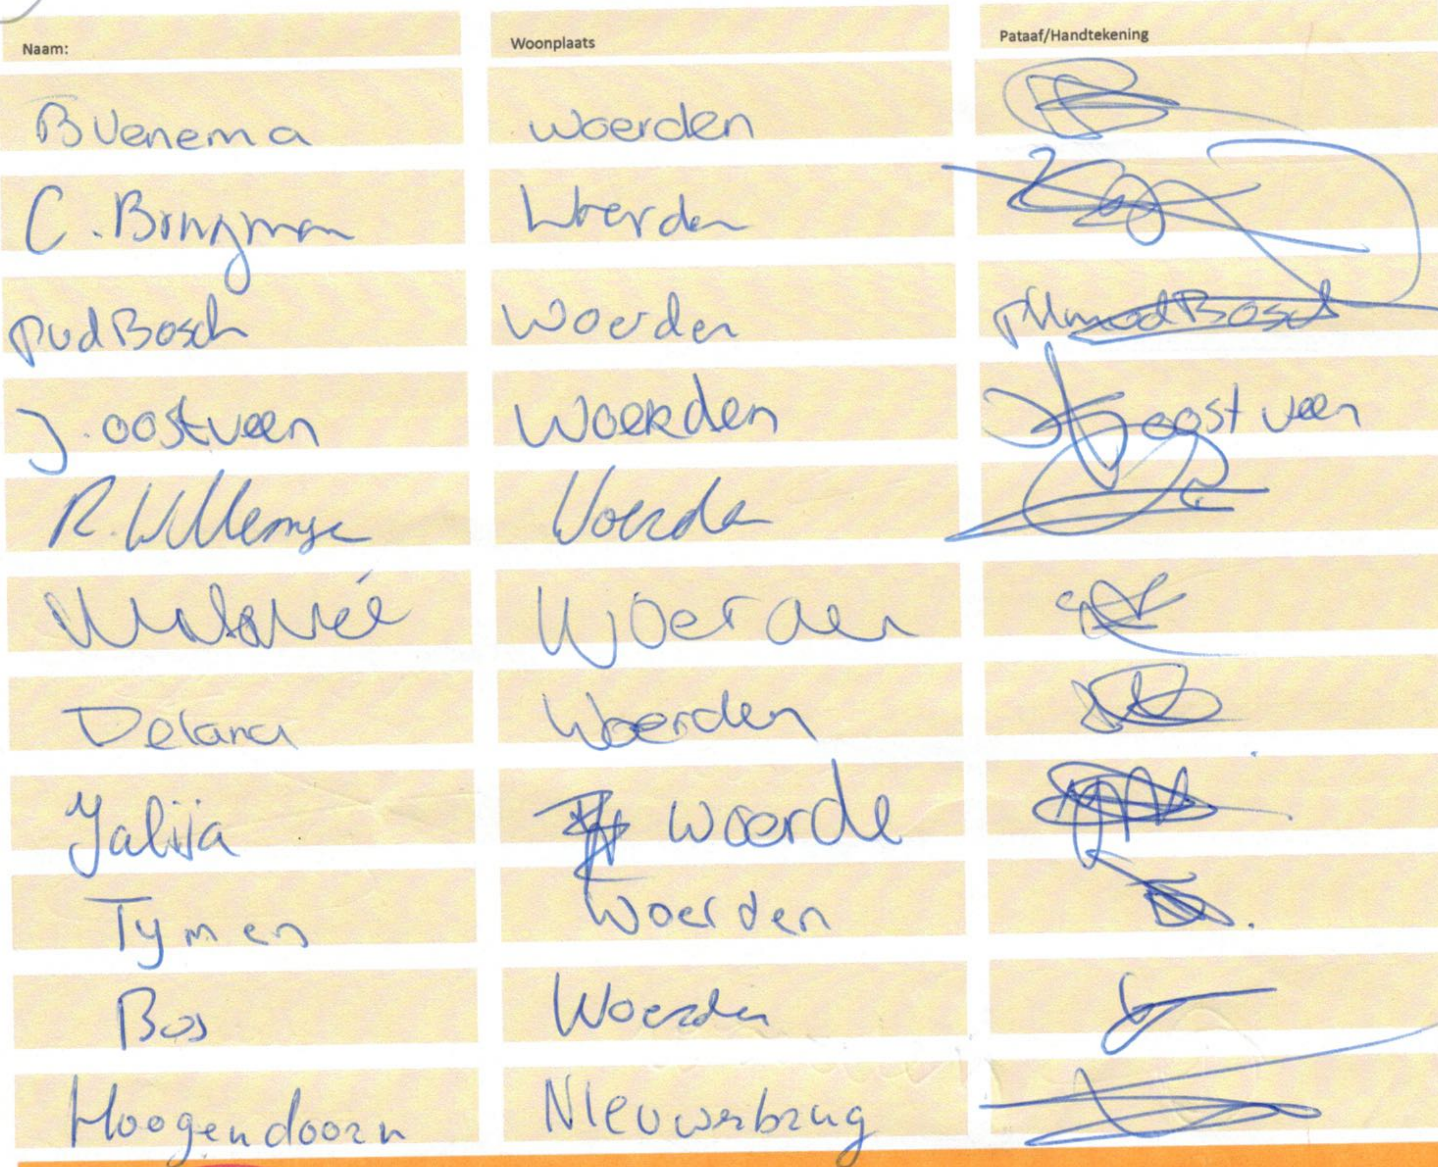 Naam: Woonplaats Pataaf/Handtekening
Buenema woerden
C. Bringman Woerden
PvdBosch Woerden PMvdBosch
J. oostveen Woerden oostveen
R. Willemse Woerden
Woerden
Delana Woerden
Jalija Woerde
Tymen Woerden
Bos Woerden
Hoogendoorn Nieuwerbrug